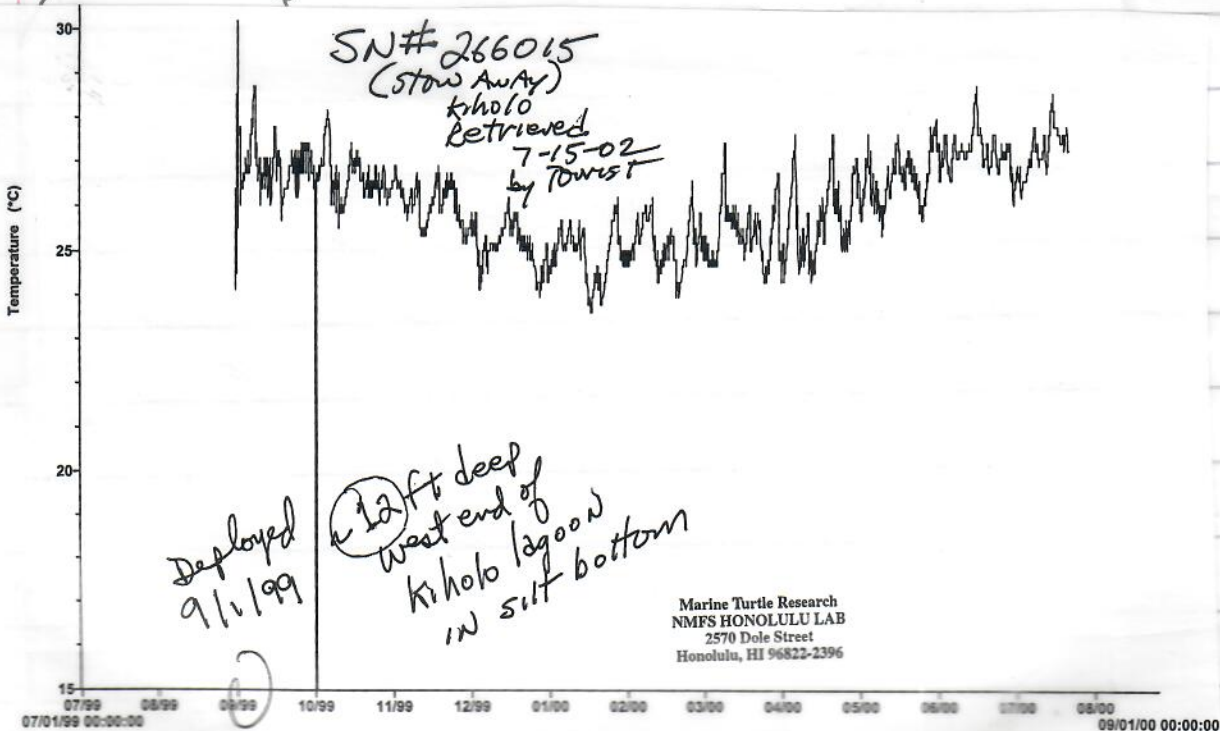 30
SN# 266015
(Stow AWAy)
kiholo
Retrieved
7-15-02
by Tourist
Temperature (°C)
25
20
Deployed
9/1/99
~12 ft deep
west end of
kiholo lagoon
in silt bottom
Marine Turtle Research
NMFS HONOLULU LAB
2570 Dole Street
Honolulu, HI 96822-2396
15
07/99 08/99 09/99 10/99 11/99 12/99 01/00 02/00 03/00 04/00 05/00 06/00 07/00 08/00
07/01/99 00:00:00 09/01/00 00:00:00